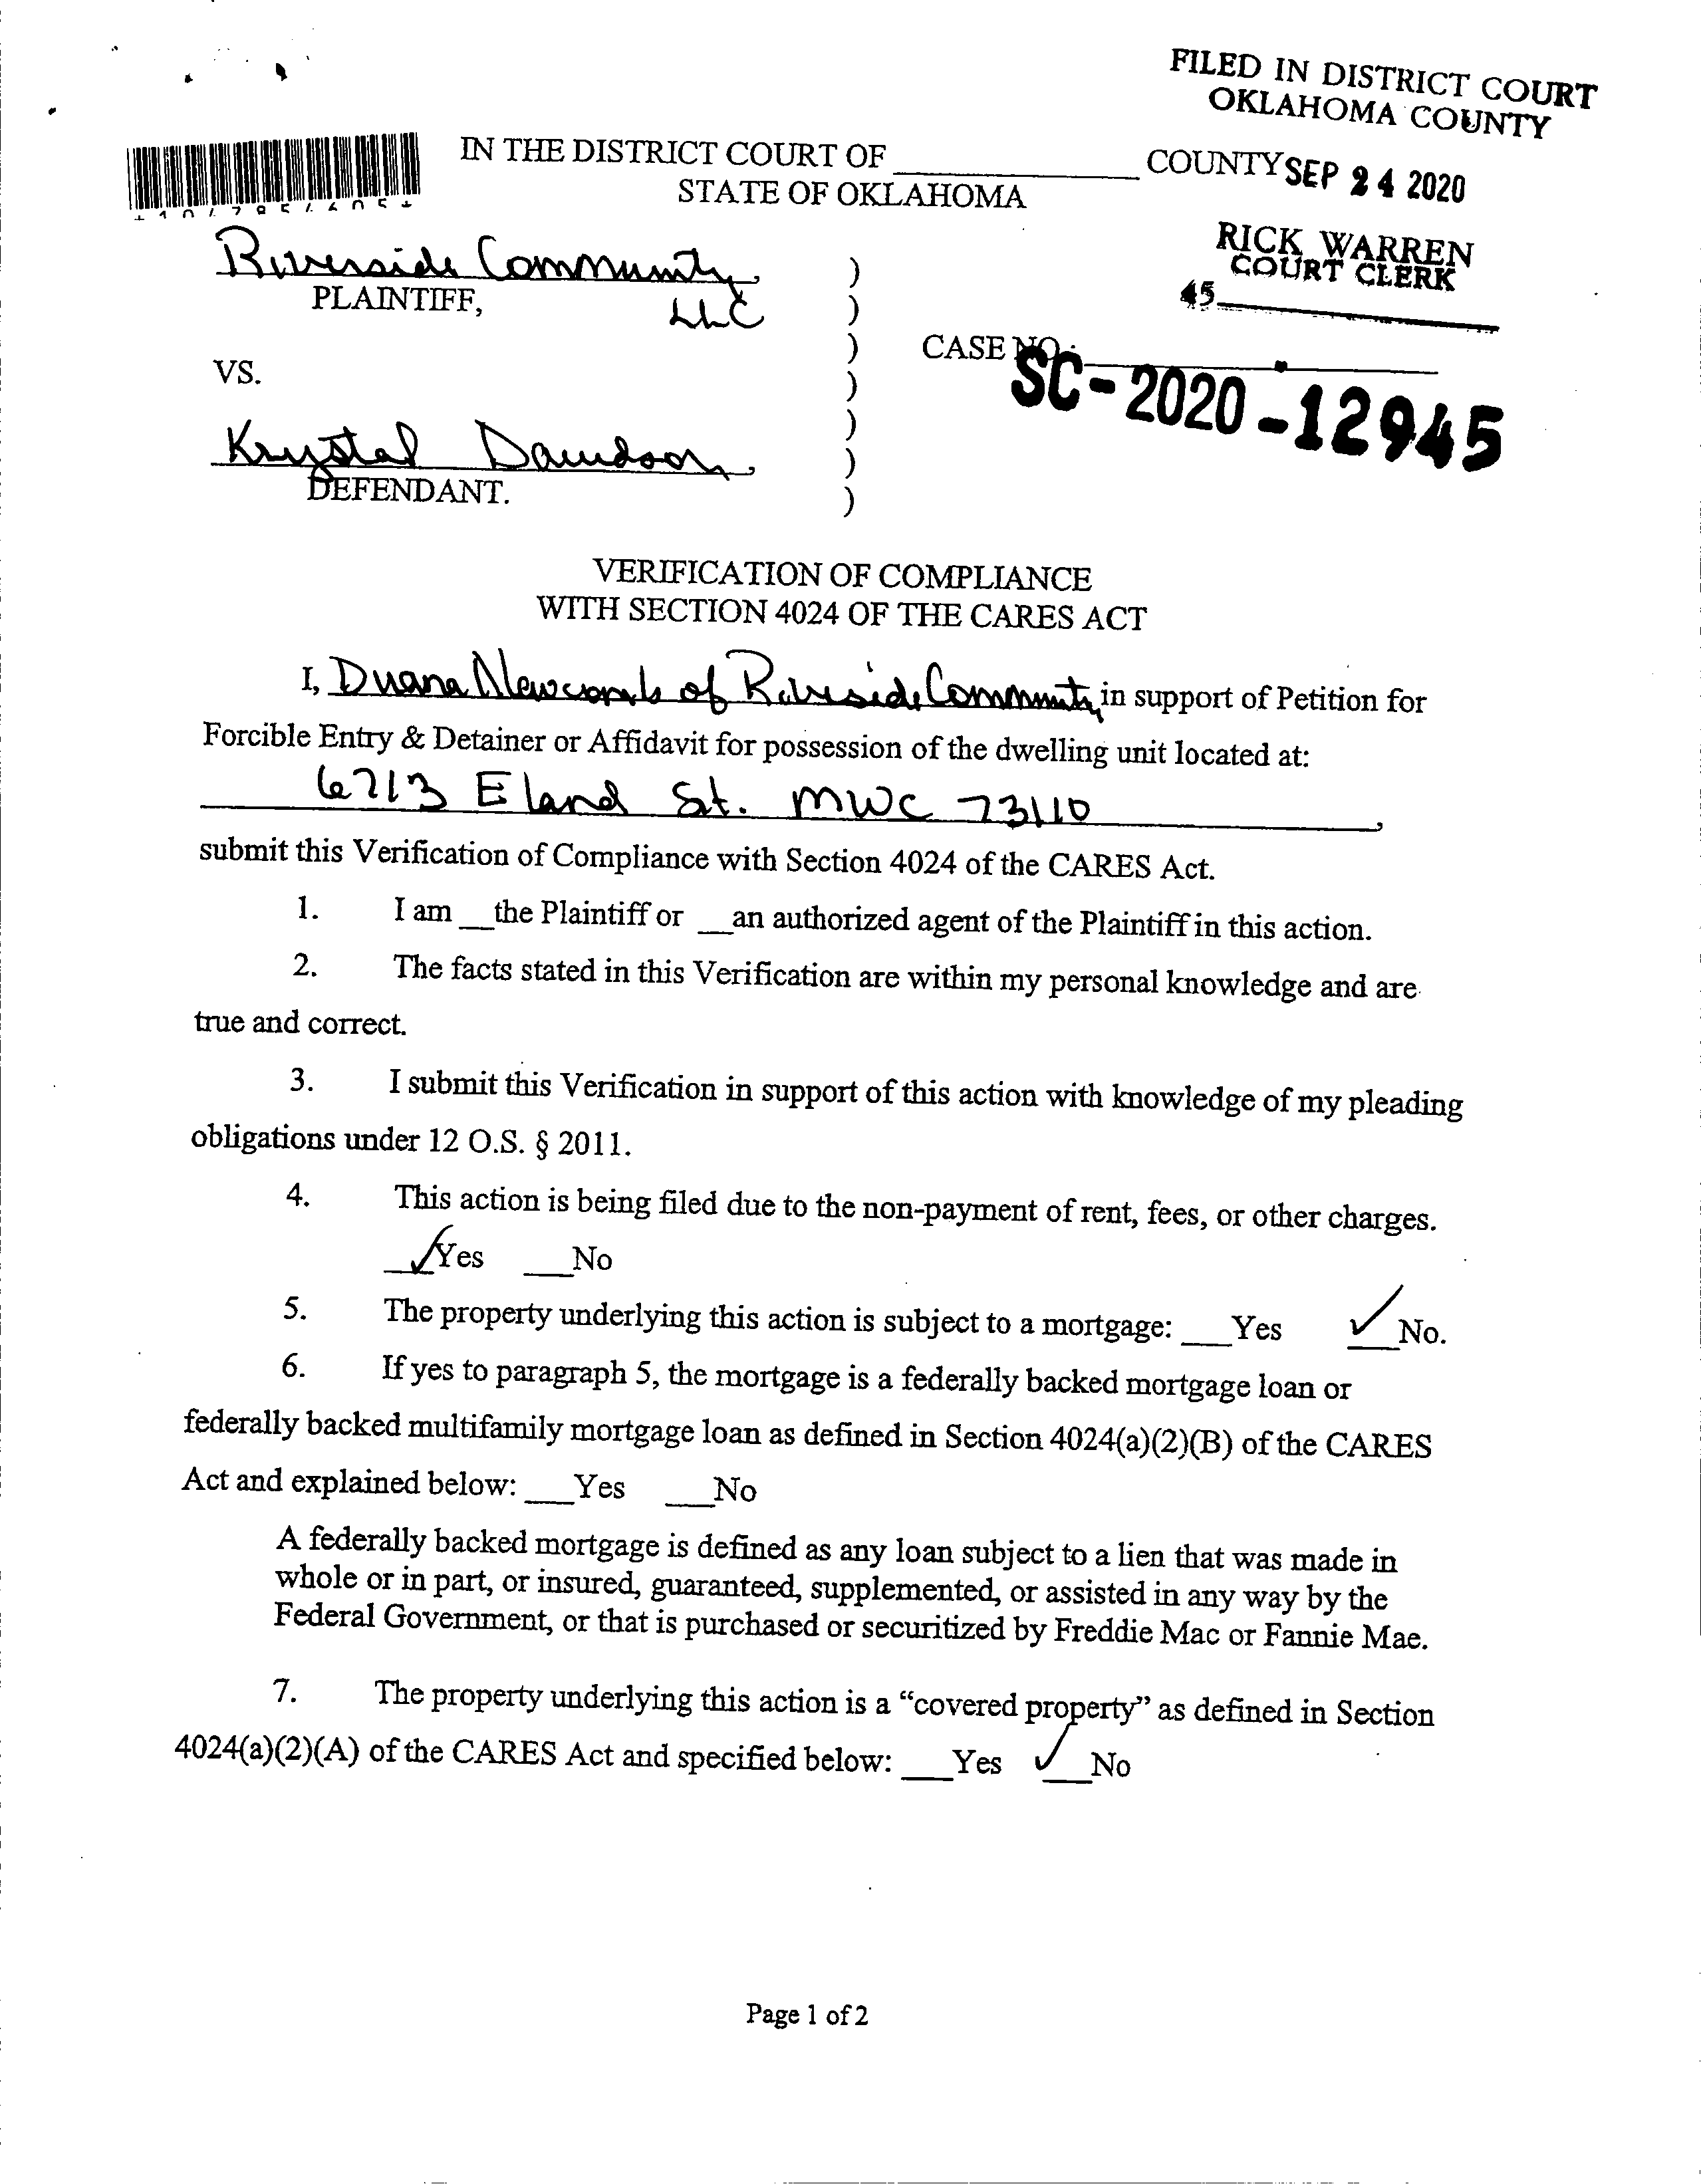 FILED IN DISTRICT COURT
OKLAHOMA COUNTY
IN THE DISTRICT COURT OF ____________ COUNTY
SEP 24 2020
STATE OF OKLAHOMA
RICK WARREN
COURT CLERK
45
Riverside Community, )
PLAINTIFF, LLC )
CASE NO.: )
SC-2020-12945
VS. )
)
Krystal Davidson, )
DEFENDANT. )
VERIFICATION OF COMPLIANCE
WITH SECTION 4024 OF THE CARES ACT
I, Duana Newcomb of Riverside Community in support of Petition for
Forcible Entry & Detainer or Affidavit for possession of the dwelling unit located at:
6713 Eland St. MWC 73110,
submit this Verification of Compliance with Section 4024 of the CARES Act.
1. I am __the Plaintiff or __an authorized agent of the Plaintiff in this action.
2. The facts stated in this Verification are within my personal knowledge and are
true and correct.
3. I submit this Verification in support of this action with knowledge of my pleading
obligations under 12 O.S. § 2011.
4. This action is being filed due to the non-payment of rent, fees, or other charges.
✓Yes ___No
5. The property underlying this action is subject to a mortgage: ___Yes ✓No.
6. If yes to paragraph 5, the mortgage is a federally backed mortgage loan or
federally backed multifamily mortgage loan as defined in Section 4024(a)(2)(B) of the CARES
Act and explained below: ___Yes ___No
A federally backed mortgage is defined as any loan subject to a lien that was made in
whole or in part, or insured, guaranteed, supplemented, or assisted in any way by the
Federal Government, or that is purchased or securitized by Freddie Mac or Fannie Mae.
7. The property underlying this action is a “covered property” as defined in Section
4024(a)(2)(A) of the CARES Act and specified below: ___Yes ✓No
Page 1 of 2